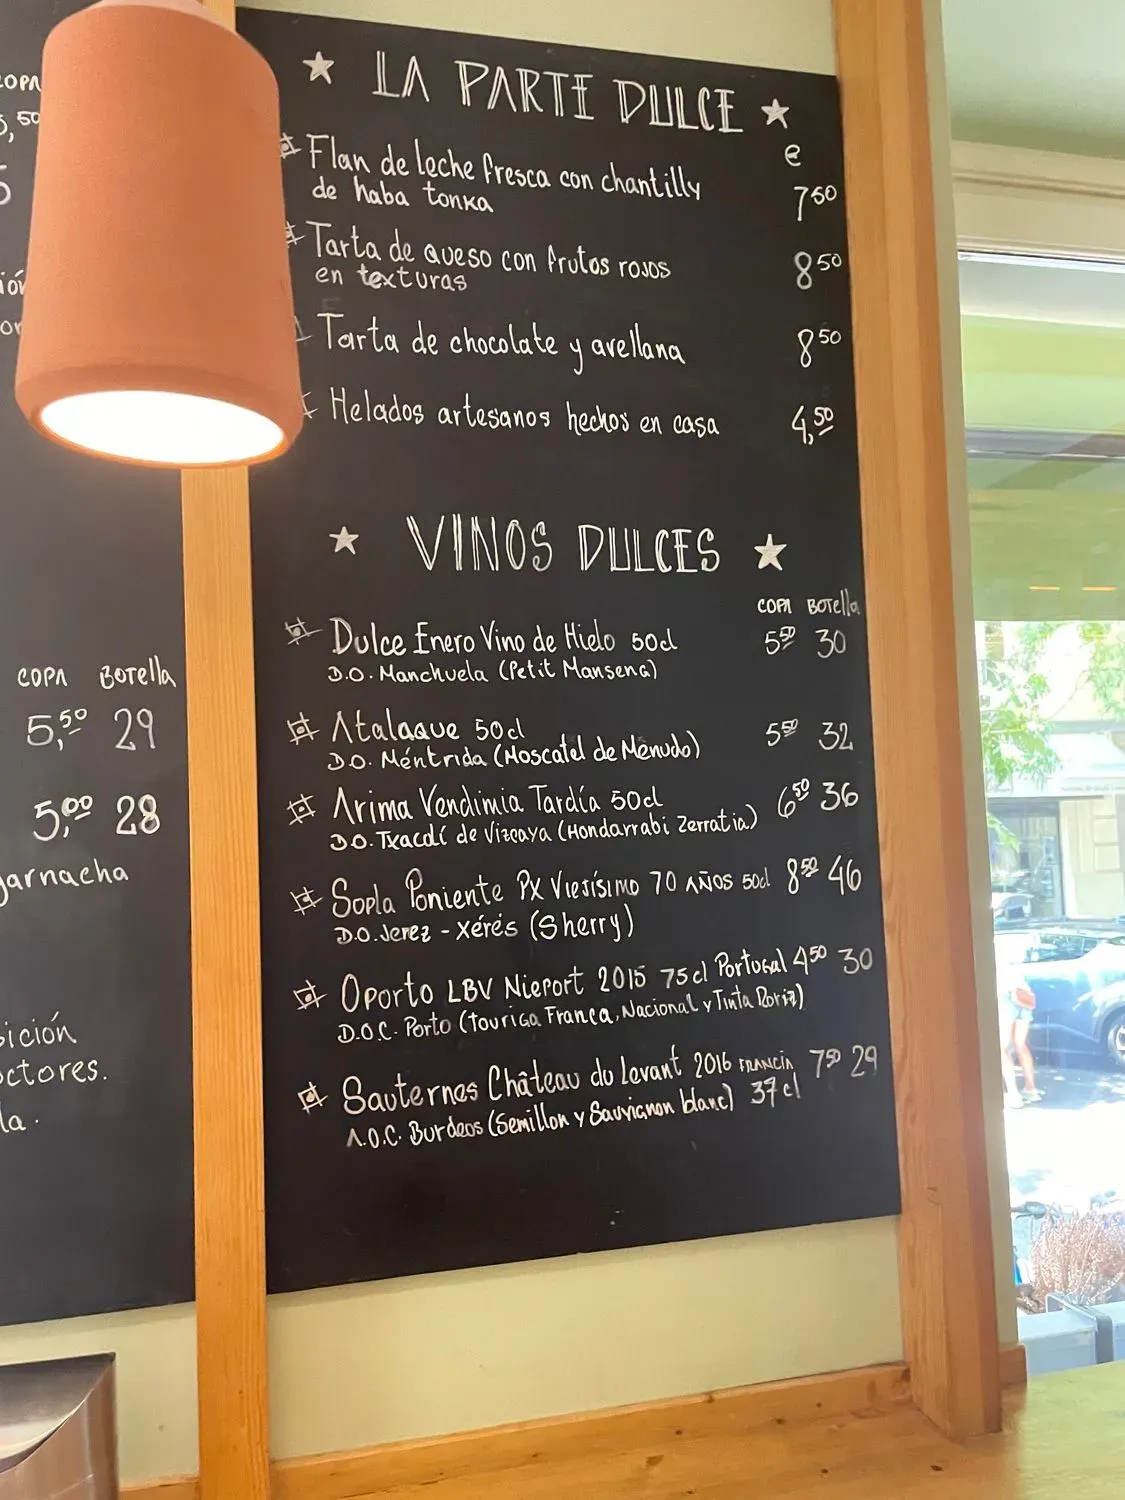 COPA
5,50
5
★ LA PARTE DULCE ★
e
Flan de leche fresca con chantilly
de haba tonka
7 50
Tarta de queso con frutos rojos
en texturas
8 50
Tarta de chocolate y avellana 8 50
Helados artesanos hechos en casa 4,50
★ VINOS DULCES ★
COPA Botella
Dulce Enero Vino de Hielo 50cl 5 50 30
D.O. Manchuela (Petit Manseng)
Atalaque 50cl 5 50 32
D.O. Méntrida (Moscatel de Menudo)
Arima Vendimia Tardía 50cl 6 50 36
D.O. Txacolí de Vizcaya (Hondarrabi Zerratia)
Sopla Poniente PX Viejísimo 70 AÑOS 50cl 8 50 46
D.O. Jerez - Xérés (Sherry)
Oporto LBV Nieport 2015 75cl Portugal 4 50 30
D.O.C. Porto (Touriga Franca, Nacional y Tinta Roriz)
Sauternes Château du Levant 2016 FRANCIA 7 50 29
A.O.C. Burdeos (Semillon y Sauvignon blanc) 37cl
COPA Botella
5,50 29
5,00 28
garnacha
ición
ctores.
la.